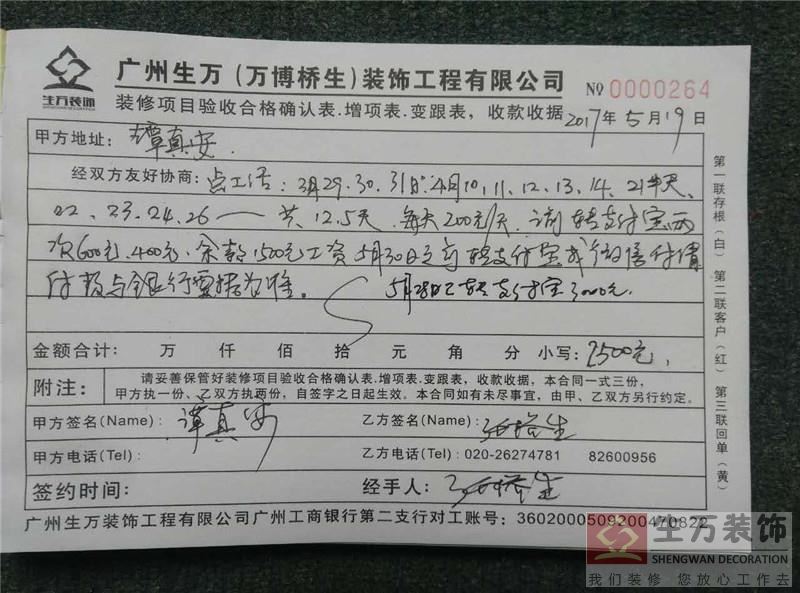 生万装饰
SHENGWAN DECORATION
广州生万（万博桥生）装饰工程有限公司 №0000264
装修项目验收合格确认表.增项表.变跟表，收款收据 2017年5月19日
甲方地址：谭真安.
经双方友好协商：点工活：3月29.30.31日.4月10,11.12.13.14.21半天.
22.23.24.26一 共12.5天 每天200元/天.
次600元.400元.余款1500元工资5月30日 转支付宝或微信付清
付款与银行票据为准。 5月28日已转支付宝3000元.
金额合计： 万 仟 佰 拾 元 角 分 小写：2500元.
附注： 请妥善保管好装修项目验收合格确认表.增项表.变跟表，收款收据，本合同一式三份，
甲方执一份、乙双方执两份，自签字之日起生效。本合同如有未尽事宜，由甲、乙双方另行约定。
甲方签名(Name)：谭真安 乙方签名(Name)：
甲方电话(Tel)： 乙方电话(Tel)：020-26274781 82600956
签约时间： 经手人：
广州生万装饰工程有限公司广州工商银行第二支行对工账号：3602000509200470822
第一联存根（白） 第二联客户（红） 第三联回单（黄）
生万装饰
SHENGWAN DECORATION
我们装修 您放心工作去